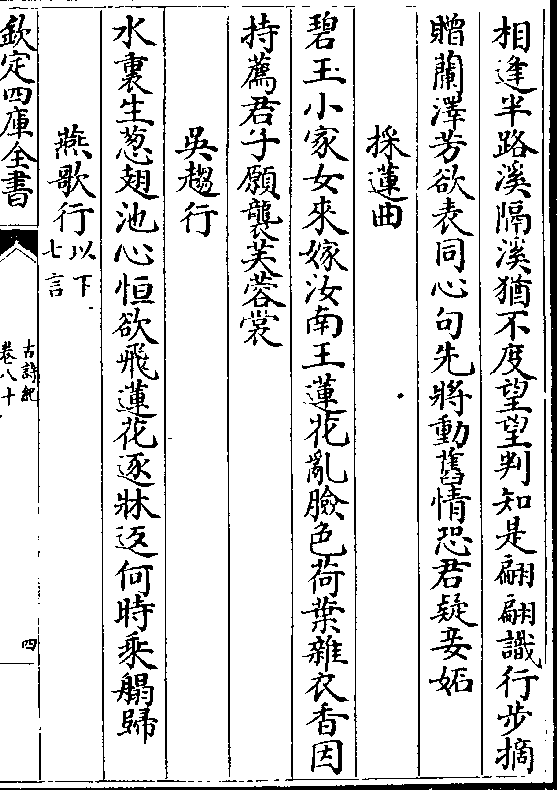 相逢半路溪隔溪猶不度望望判知是翩翩識行步摘
贈蘭澤芳欲表同心句先將動舊情恐君疑妾妬
採蓮曲
碧玉小家女來嫁汝南王蓮花亂臉色荷葉雜衣香因
持薦君子願襲芙蓉裳
吳趨行
水裏生葱翅池心恒欲飛蓮花逐牀返何時乘鷁歸
燕歌行以下七言
欽定四庫全書
古詩紀
卷八十
四